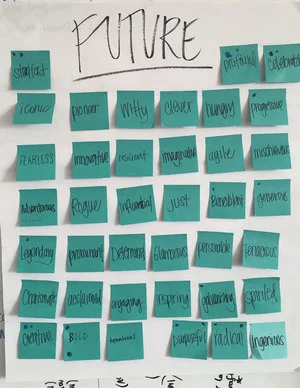 FUTURE
steadfast profound
iconic pioneer witty clever hungry progressive
FEARLESS innovative prescient imaginative agile mischievous
Adventurous Rogue influential just Benevolent generous
Legendary prominant Determined Glamorous personable Tenacious
acclaimed engaging inspiring galvanizing spirited
creative BOLD purposeful radical Ingenious